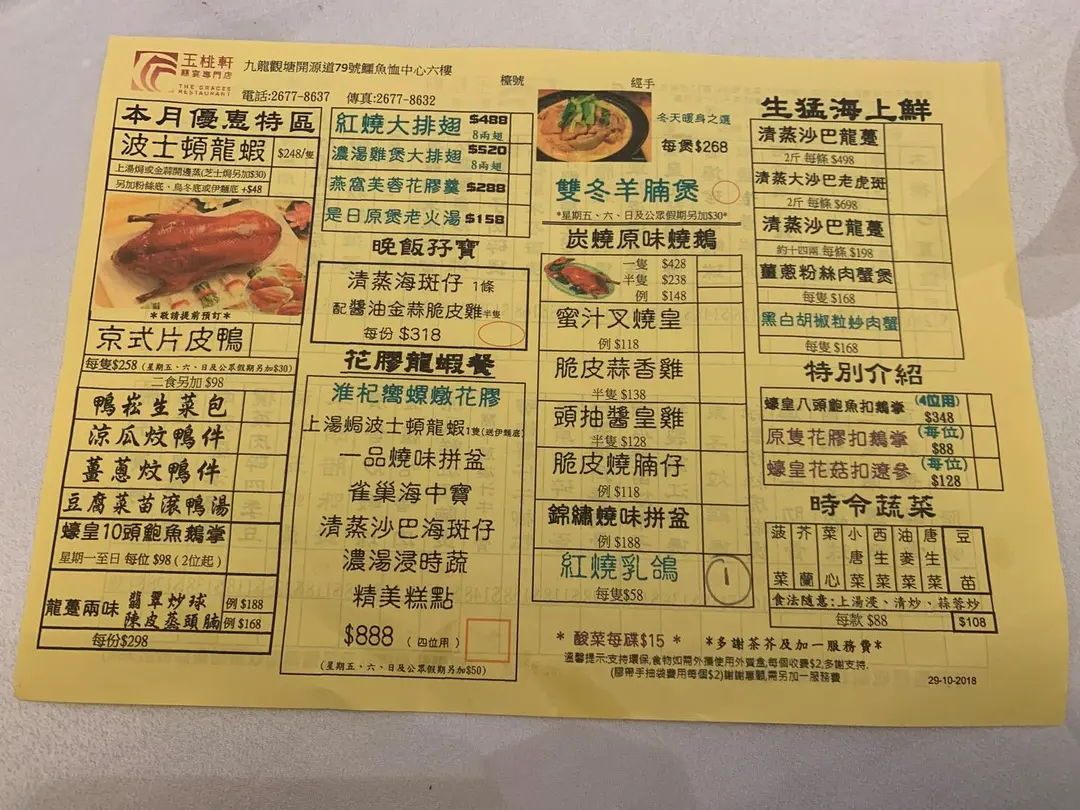 玉桃軒
囍宴專門店
THE GRACES
RESTAURANT
九龍觀塘開源道79號鱷魚恤中心六樓
電話:2677-8637 傳真:2677-8632
檯號
經手
本月優惠特區
波士頓龍蝦 $248/隻
上湯焗或金蒜開邊蒸(芝士焗另加$30)
另加粉絲底、烏冬底或伊麵底 +$48
*敬請提前預訂*
京式片皮鴨
每隻$258 (星期五、六、日及公眾假期另加$30)
二食另加 $98
鴨崧生菜包
涼瓜炆鴨件
薑蔥炆鴨件
豆腐菜苗滾鴨湯
蠔皇10頭鮑魚鵝掌
星期一至日 每位 $98 ( 2位起 )
龍躉兩味
翡翠炒球 例 $188
陳皮蒸頭腩 例 $168
每份$298
紅燒大排翅 $488
8兩翅
濃湯雞煲大排翅 $520
8兩翅
燕窩芙蓉花膠羹 $288
是日原煲老火湯 $158
晚飯孖寶
清蒸海斑仔 1條
配醬油金蒜脆皮雞半隻
每份 $318
花膠龍蝦餐
淮杞響螺燉花膠
上湯焗波士頓龍蝦1隻(送伊麵底)
一品燒味拼盆
雀巢海中寶
清蒸沙巴海斑仔
濃湯浸時蔬
精美糕點
$888 ( 四位用 )
(星期五、六、日及公眾假期另加$50)
冬天暖身之選
每煲$268
雙冬羊腩煲
*星期五、六、日及公眾假期另加$30*
炭燒原味燒鵝
一隻 $428
半隻 $238
例 $148
蜜汁叉燒皇
例 $118
脆皮蒜香雞
半隻 $138
頭抽醬皇雞
半隻 $128
脆皮燒腩仔
例 $118
錦繡燒味拼盆
例 $188
紅燒乳鴿
每隻$58
1
* 酸菜每碟$15 *
*多謝茶芥及加一服務費*
溫馨提示:支持環保,食物如需外攜使用外賣盒,每個收費$2,多謝支持.
(膠帶手抽袋費用每個$2)謝謝惠顧,需另加一服務費
29-10-2018
生猛海上鮮
清蒸沙巴龍躉
2斤 每條 $498
清蒸大沙巴老虎斑
2斤 每條 $698
清蒸沙巴龍躉
約十四兩 每條 $198
薑蔥粉絲肉蟹煲
每隻 $168
黑白胡椒粒炒肉蟹
每隻 $168
特別介紹
蠔皇八頭鮑魚扣鵝掌 (4位用)
$348
原隻花膠扣鵝掌 (每位)
$88
蠔皇花菇扣遼參 (每位)
$128
時令蔬菜
菠菜 芥蘭 菜心 小唐菜 西生菜 油麥菜 唐生菜 豆苗
食法隨意:上湯浸、清炒、蒜蓉炒
每款 $88
$108